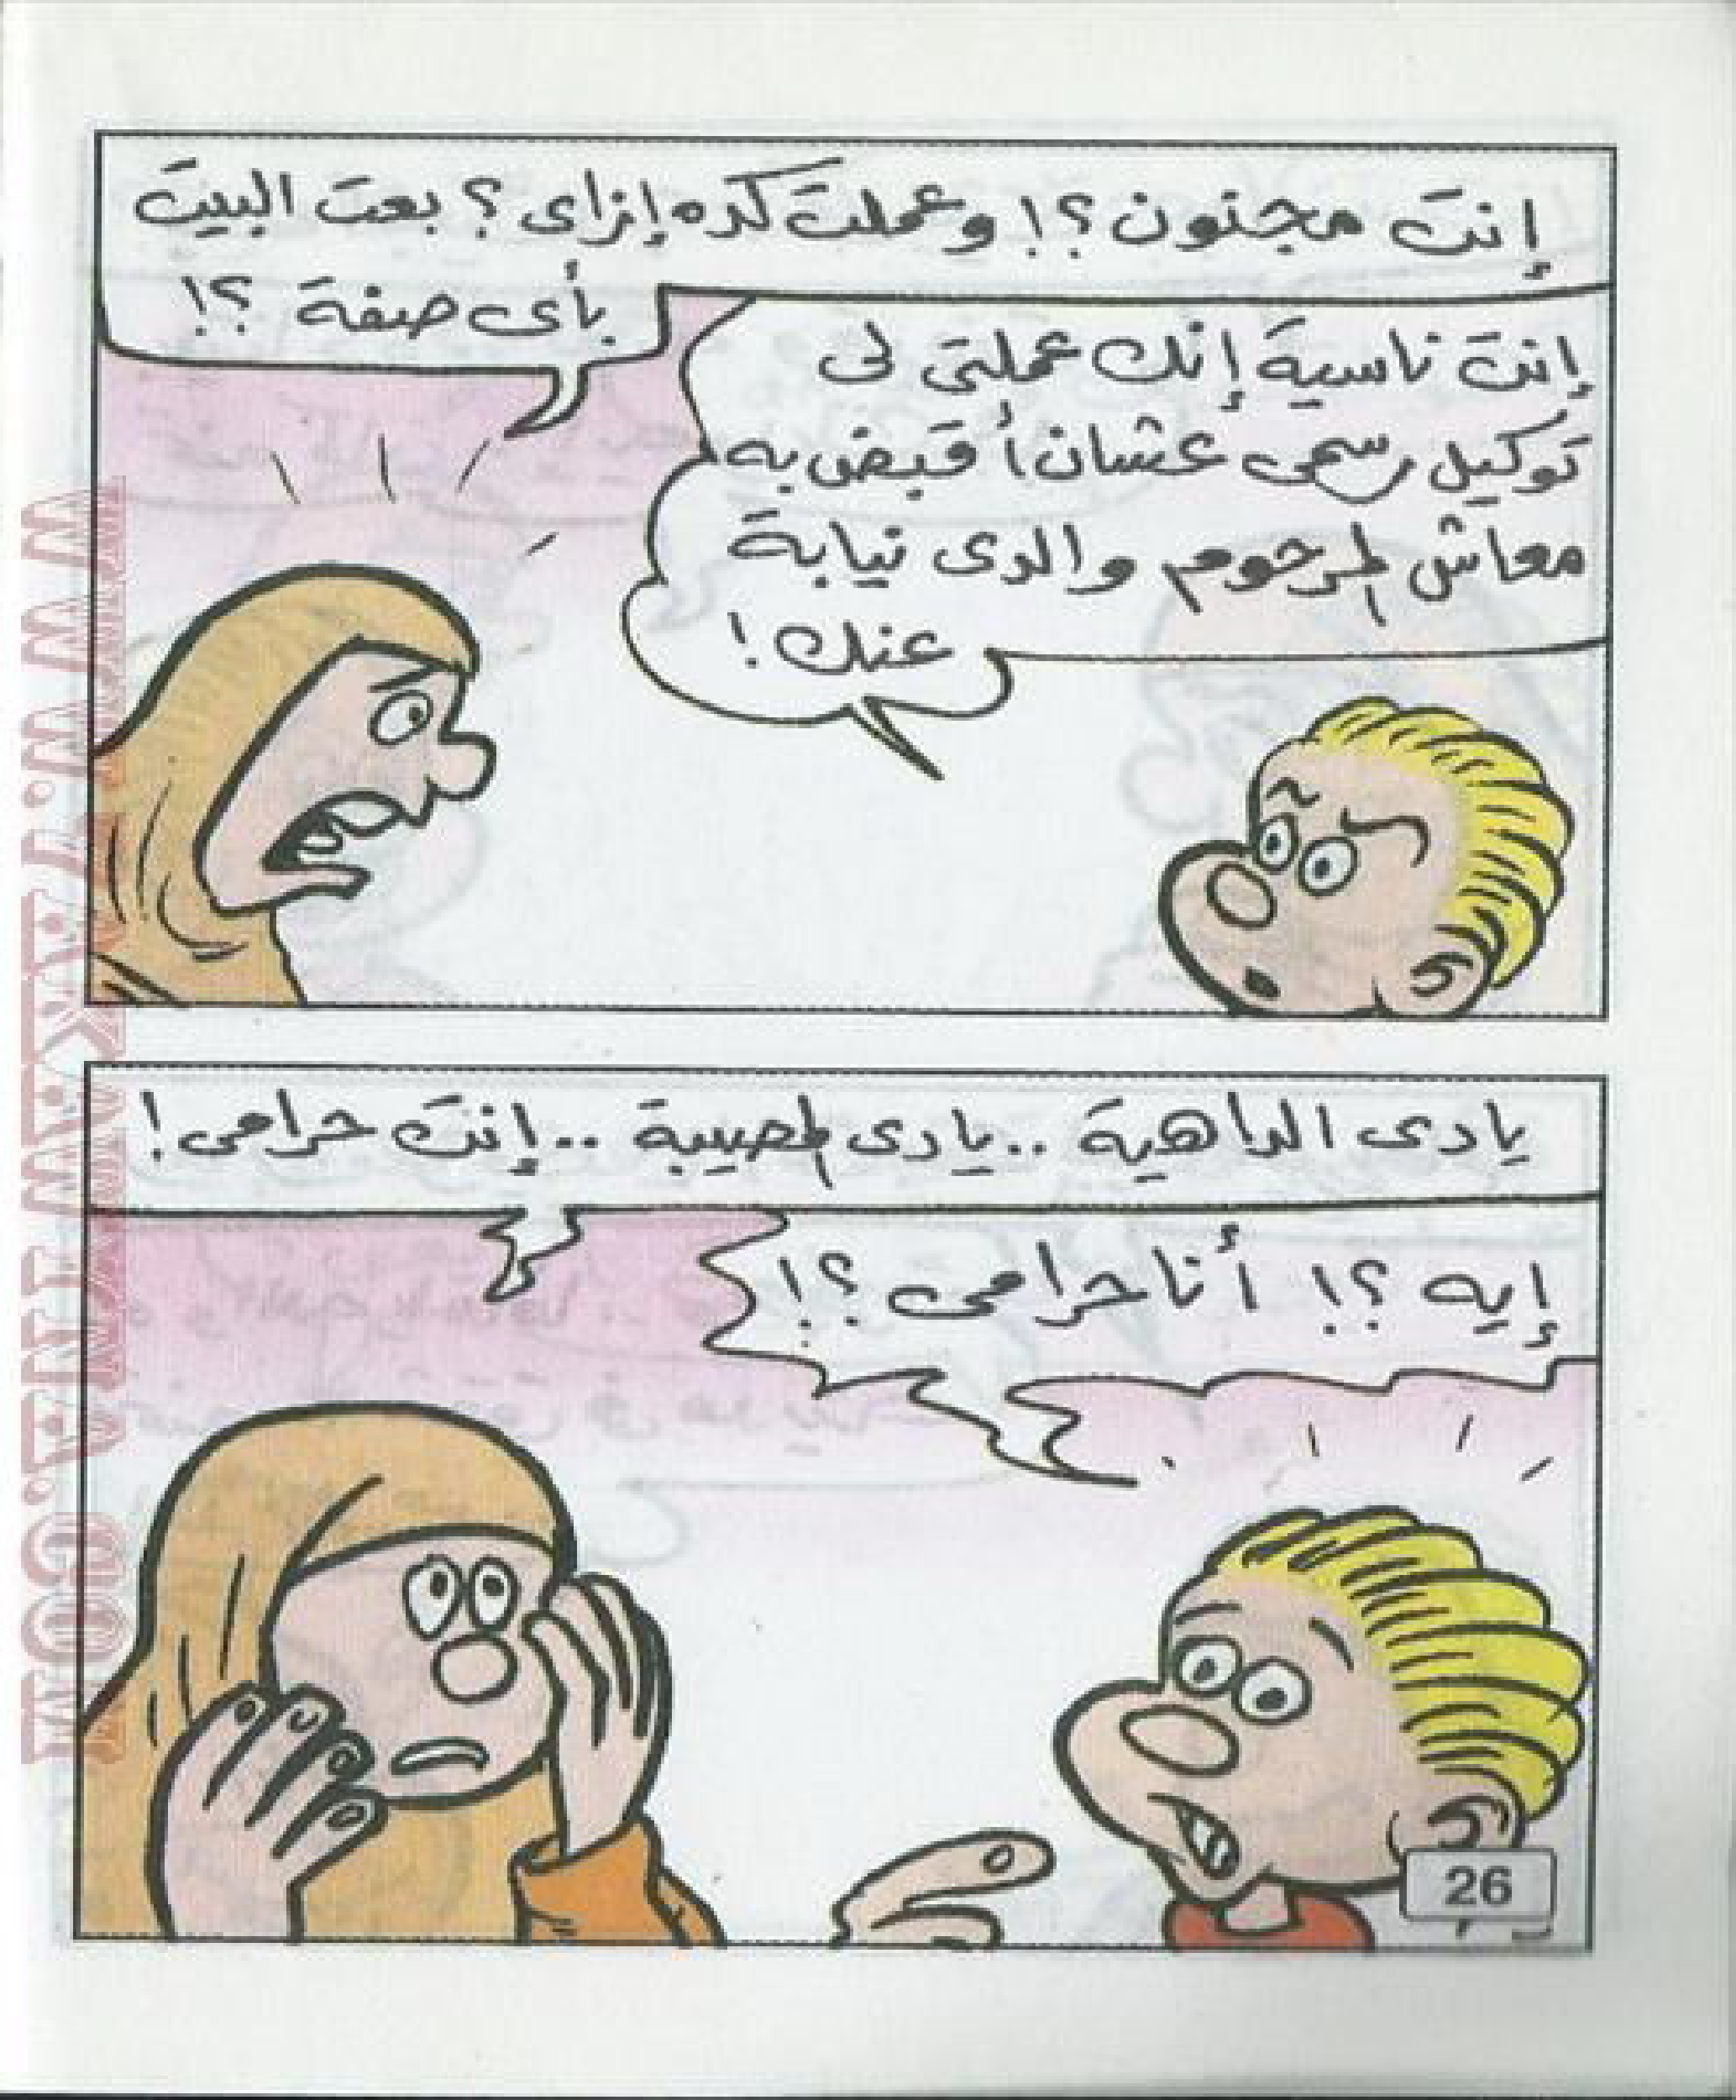 إنت مجنون؟! وعملت كده إزاى؟ بعت البيت
بأى صفة؟!
إنت ناسية إنك عملتى لى
توكيل رسمى عشان أقبض به
معاش المرحوم والدى نيابة
عنك!
يادى الداهية.. يادى المصيبة.. إنت حرامى!
إيه؟! أنا حرامى؟!
26